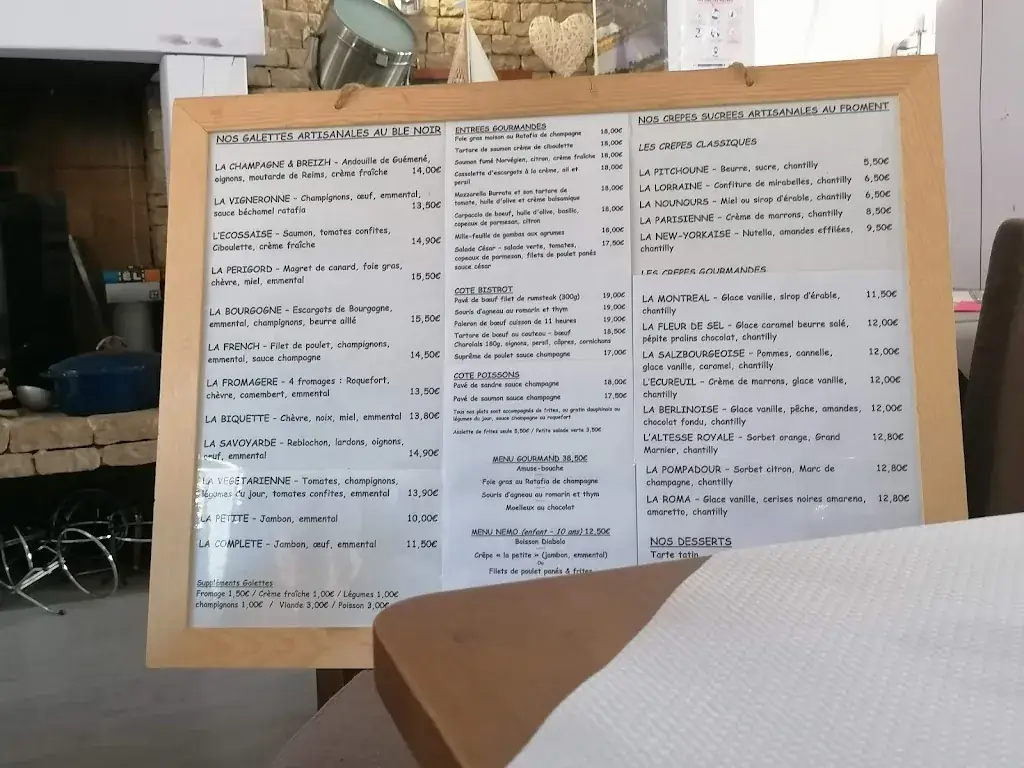 NOS GALETTES ARTISANALES AU BLE NOIR
LA CHAMPAGNE & BREIZH - Andouille de Guémené,
oignons, moutarde de Reims, crème fraîche 14,00€
LA VIGNERONNE - Champignons, œuf, emmental,
sauce béchamel ratafia 13,50€
L'ECOSSAISE - Saumon, tomates confites,
Ciboulette, crème fraîche 14,90€
LA PERIGORD - Magret de canard, foie gras,
chèvre, miel, emmental 15,50€
LA BOURGOGNE - Escargots de Bourgogne,
emmental, champignons, beurre aillé 15,50€
LA FRENCH - Filet de poulet, champignons,
emmental, sauce champagne 14,50€
LA FROMAGERE - 4 fromages : Roquefort,
chèvre, camembert, emmental 13,50€
LA BIQUETTE - Chèvre, noix, miel, emmental 13,80€
LA SAVOYARDE - Reblochon, lardons, oignons,
œuf, emmental 14,90€
LA VEGETARIENNE - Tomates, champignons,
légumes du jour, tomates confites, emmental 13,90€
LA PETITE - Jambon, emmental 10,00€
LA COMPLETE - Jambon, œuf, emmental 11,50€
Suppléments Galettes
Fromage 1,50€ / Crème fraîche 1,00€ / Légumes 1,00€
champignons 1,00€ / Viande 3,00€ / Poisson 3,00€
ENTREES GOURMANDES
Foie gras maison au Ratafia de champagne 18,00€
Tartare de saumon crème de ciboulette 18,00€
Saumon fumé Norvégien, citron, crème fraîche 18,00€
Cassolette d'escargots à la crème, ail et
persil 18,00€
Mozzarella Burrata et son tartare de
tomate, huile d'olive et crème balsamique 18,00€
Carpaccio de boeuf, huile d'olive, basilic,
copeaux de parmesan, citron 18,00€
Mille-feuille de gambas aux agrumes 18,00€
Salade César - salade verte, tomates, 17,50€
copeaux de parmesan, filets de poulet panés
sauce césar
COTE BISTROT
Pavé de bœuf filet de rumsteak (300g) 19,00€
Souris d'agneau au romarin et thym 19,00€
Paleron de bœuf cuisson de 11 heures 19,00€
Tartare de bœuf au couteau - bœuf 18,50€
Charolais 180g, oignons, persil, câpres, cornichons
Suprême de poulet sauce champagne 17,00€
COTE POISSONS
Pavé de sandre sauce champagne 18,00€
Pavé de saumon sauce champagne 17,50€
Tous nos plats sont accompagnés de frites, ou gratin dauphinois ou
légumes du jour, sauce champagne ou roquefort
Assiette de frites seule 5,50€ / Petite salade verte 3,50€
MENU GOURMAND 38,50€
Amuse-bouche
Foie gras au Ratafia de champagne
Souris d'agneau au romarin et thym
Moelleux au chocolat
MENU NEMO (enfant - 10 ans) 12,50€
Boisson Diabolo
Crêpe « la petite » (jambon, emmental)
Ou
Filets de poulet panés & frites
NOS CREPES SUCREES ARTISANALES AU FROMENT
LES CREPES CLASSIQUES
LA PITCHOUNE - Beurre, sucre, chantilly 5,50€
LA LORRAINE - Confiture de mirabelles, chantilly 6,50€
LA NOUNOURS - Miel ou sirop d'érable, chantilly 6,50€
LA PARISIENNE - Crème de marrons, chantilly 8,50€
LA NEW-YORKAISE - Nutella, amandes effilées, 9,50€
chantilly
LES CREPES GOURMANDES
LA MONTREAL - Glace vanille, sirop d'érable, 11,50€
chantilly
LA FLEUR DE SEL - Glace caramel beurre salé, 12,00€
pépite pralins chocolat, chantilly
LA SALZBOURGEOISE - Pommes, cannelle, 12,00€
glace vanille, caramel, chantilly
L'ECUREUIL - Crème de marrons, glace vanille, 12,00€
chantilly
LA BERLINOISE - Glace vanille, pêche, amandes, 12,00€
chocolat fondu, chantilly
L'ALTESSE ROYALE - Sorbet orange, Grand 12,80€
Marnier, chantilly
LA POMPADOUR - Sorbet citron, Marc de 12,80€
champagne, chantilly
LA ROMA - Glace vanille, cerises noires amarena, 12,80€
amaretto, chantilly
NOS DESSERTS
Tarte tatin